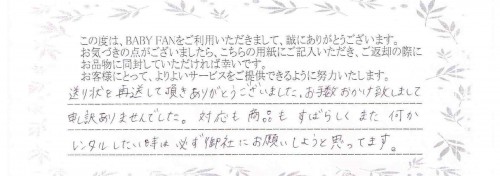 この度は、BABY FANをご利用いただきまして、誠にありがとうございます。
お気づきの点がございましたら、こちらの用紙にご記入いただき、ご返却の際に
お品物に同封していただければ幸いです。
お客様にとって、よりよいサービスをご提供できるように努力いたします。
送り状を再送して頂きありがとうございました、お手数おかけ致しまして
申し訳ありませんでした。対応も商品もすばらしくまた何か
レンタルしたい時は必ず御社にお願いしようと思ってます。